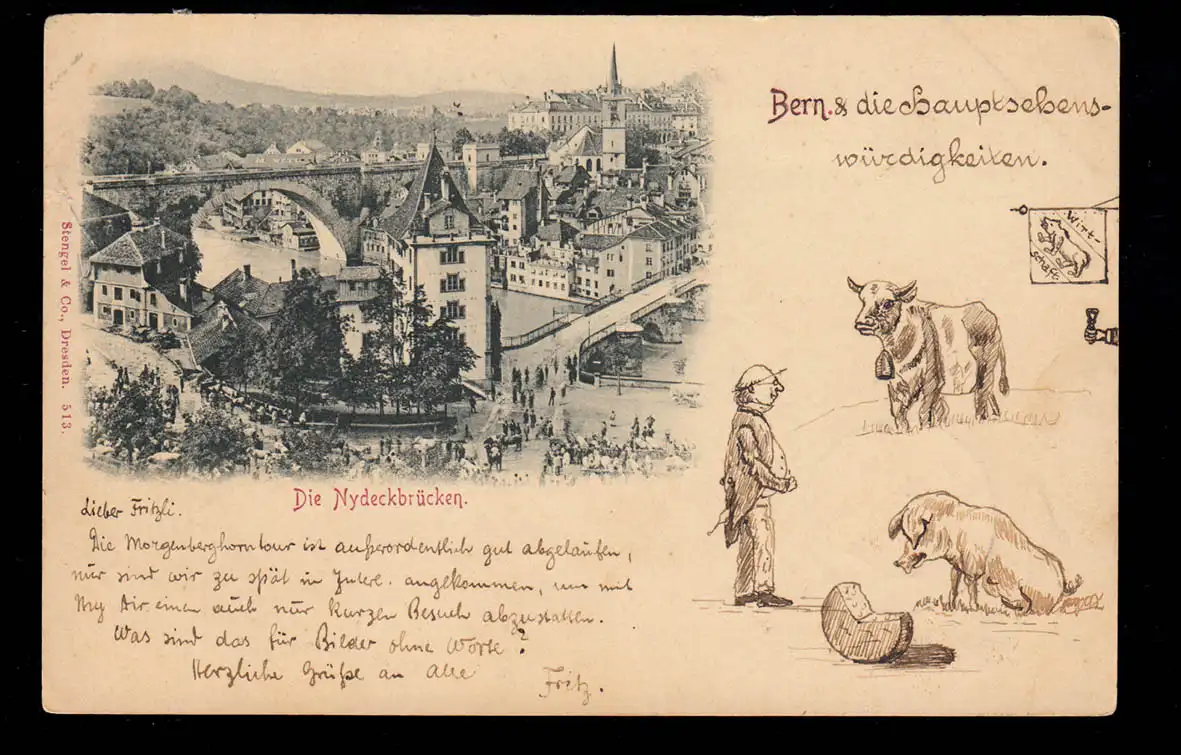 Bern. & die Hauptsehens-
würdigkeiten.
Wirt-
schaft
Stengel & Co., Dresden. 513.
Die Nydeckbrücken.
Lieber Fritzli.
Die Morgenberghorntour ist außerordentlich gut abgelaufen,
nur sind wir zu spät in Interl. angekommen, um mit
einen auch nur kurzen Besuch abzustatten.
Was sind das für Bilder ohne Worte?
Herzliche Grüße an Alle
Fritz.